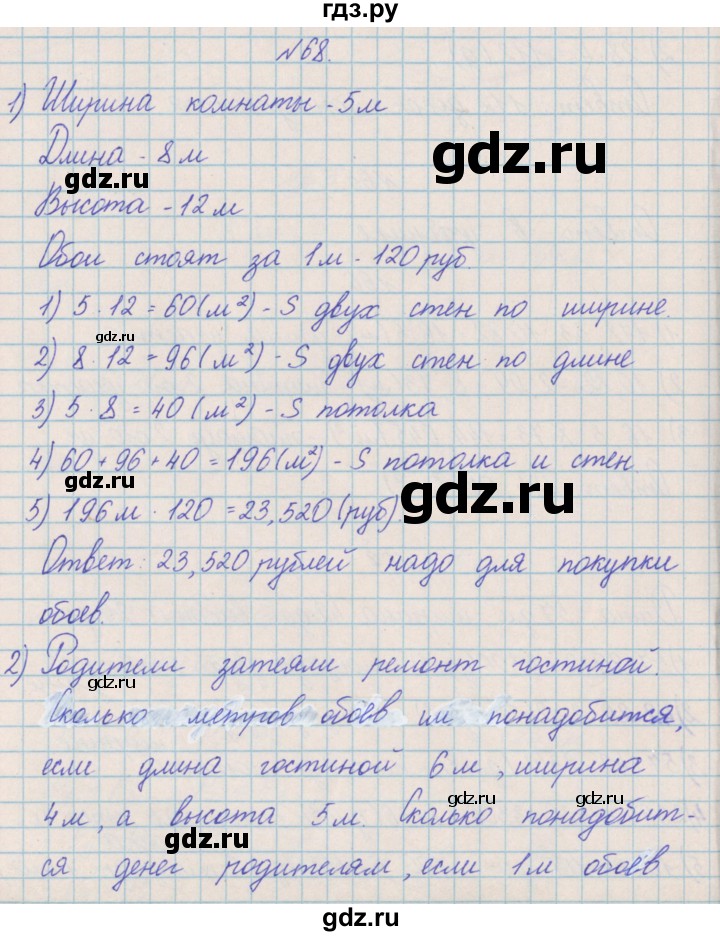 гдз.ру
№68.
1) Ширина комнаты - 5м
gdz.ru
Длина - 8м
gdz.ru
Высота - 12м
Обои стоят за 1м - 120 руб.
1) 5 · 12 = 60 (м²) - S двух стен по ширине.
gdz.ru
gdz.ru
2) 8 · 12 = 96 (м²) - S двух стен по длине
3) 5 · 8 = 40 (м²) - S потолка
4) 60 + 96 + 40 = 196 (м²) - S потолка и стен
gdz.ru
gdz.ru
5) 196м · 120 = 23,520 (руб)
Ответ: 23,520 рублей надо для покупки
gdz.ru
обоев.
2) Родители затеяли ремонт гостиной.
gdz.ru
Сколько метров обоев им понадобится,
если длина гостиной 6м, ширина
gdz.ru
gdz.ru
4м, а высота 5м. Сколько понадобит-
gdz.ru
ся денег родителям, если 1м обоев
gdz.ru